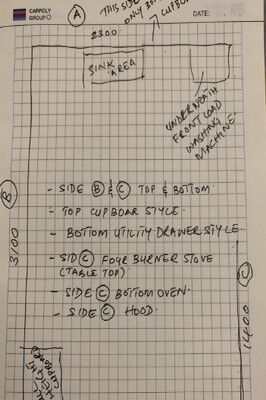 CARPOLY
GROUP
DATE:
A
THIS SIDE
ONLY BOT
CUPBOA
2300
SINK
AREA
UNDERNEATH
FRONT LOAD
WASHING
MACHINE
B
3100
- SIDE B & C TOP & BOTTOM
- TOP CUPBOAR STYLE
- BOTTOM UTILITY DRAWER STYLE
- SID C FOUR BURNER STOVE
(TABLE TOP)
- SIDE C BOTTOM OVEN
- SIDE C HOOD
C
1400
HEIGHT
CUPBOARD